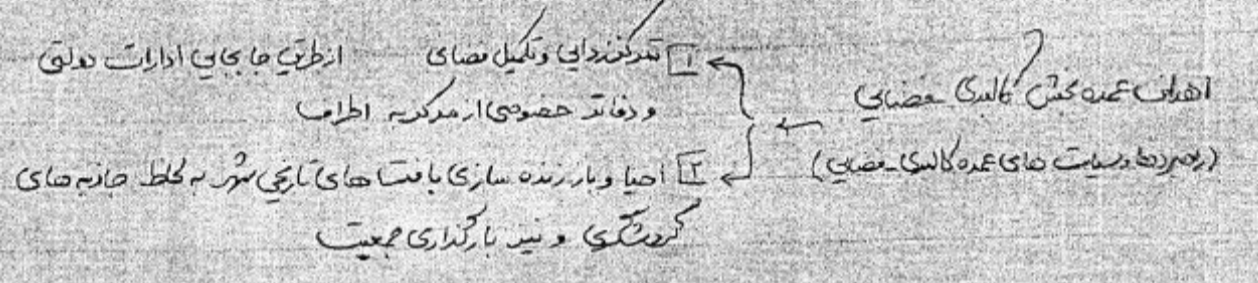 اهداف عمده بخش کالبدی - فضایی
(راهبردها و سیاست های عمده کالبدی - فضایی)
۱ تمرکززدایی و تکمیل فضای از طریق جابجایی ادارات دولتی
و دفاتر خصوصی از مرکز به اطراف
۲ احیا و باز زنده سازی بافت های تاریخی شهر به لحاظ جاذبه های
گردشگری و نیز بارگذاری جمعیت